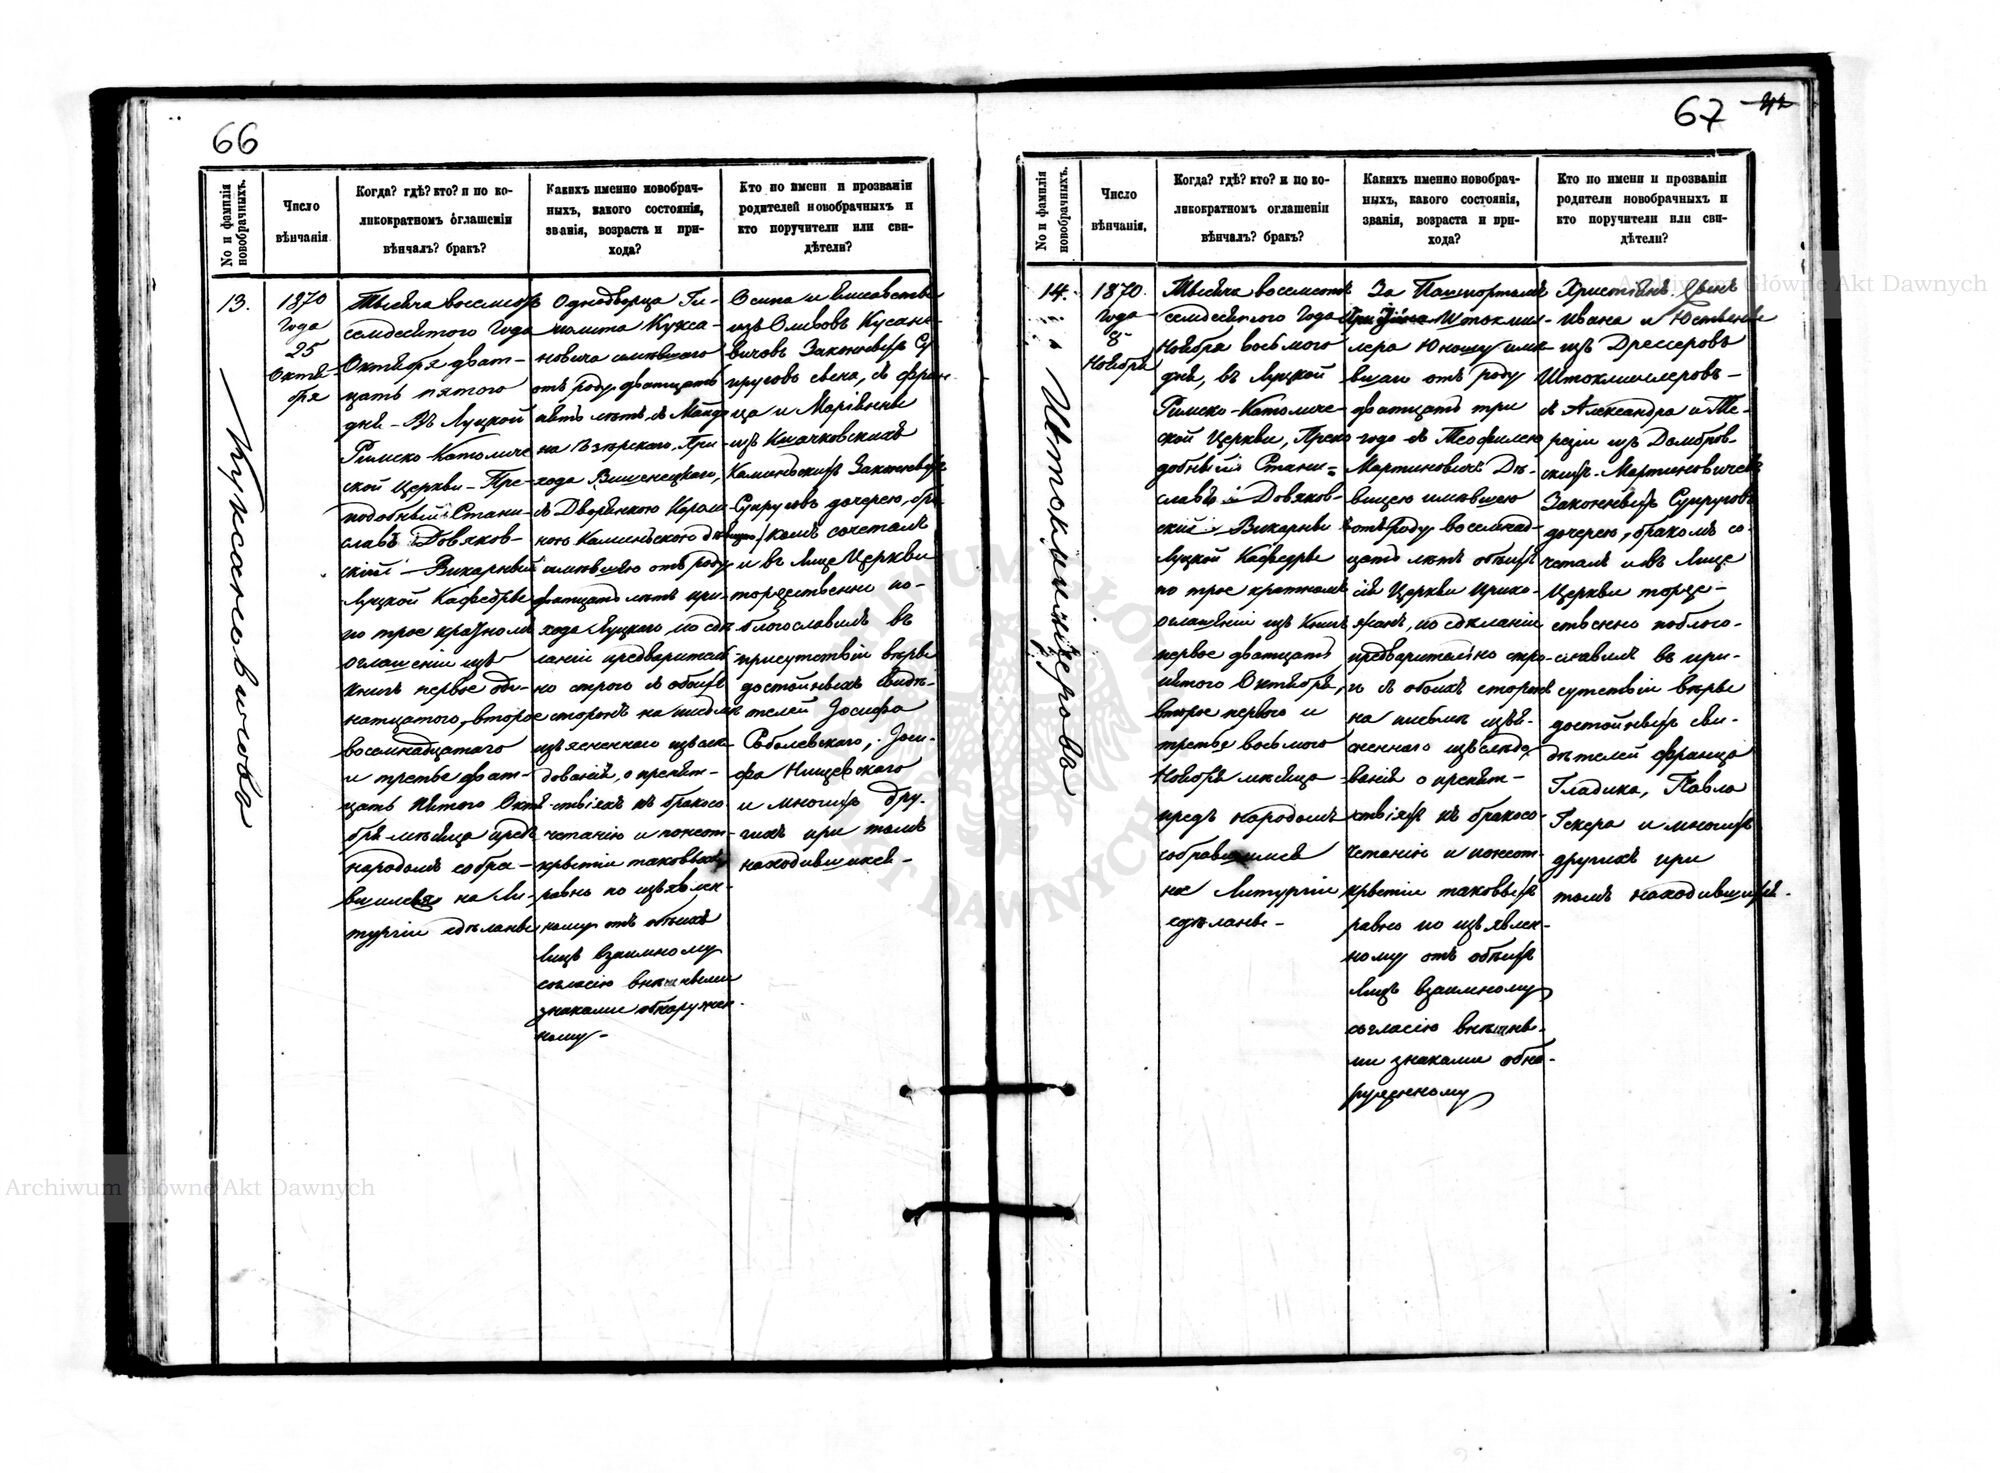 66
No и фамилія новобрачныхъ.
Число вѣнчанія
Когда? гдѣ? кто? и по ко-
ликократномъ оглашеніи
вѣнчалъ? бракъ?
Какихъ именно новобрач-
ныхъ, какого состоянія,
званія, возраста и при-
хода?
Кто по имени и прозванія
родителей новобрачныхъ и
кто поручители или сви-
дѣтели?
13.
1870
года
25
Октя-
бря
Тысяча восемсотъ
семдесятого Года
Октября дват-
цать пятого
дня - Въ Луцкой
Римско Католиче
ской Церкви - Пре-
подобный Стани-
славъ Довяков-
скій - Викарный
Луцкой Кафедры
по трое кратномъ
оглашеніи изъ
книгъ первое оди-
натцатого, второе
восемнадцатаго
и третье дват-
цать пятого Октя
бря мѣсяца предъ
народомъ собра-
вшимся на Ли-
тургіи сдѣланы
Однодворца
новича имѣвшаго
отъ роду дватцать
хода Вишенецкого,
съ Дворянкою
имѣвшею отъ роду
двatцать лѣтъ при-
хода Луцкого, по сдѣ
ланіи предваритель
но строго съ обоихъ
сторонъ на письмѣ
изъясненного изслѣ-
дованій, о препят-
ствіяхъ къ бракосо
четанію и неот-
крытіи таковыхъ
равно по изъявлен-
ному отъ обоихъ
Лицъ взаимному
согласію внѣшными
знаками обнаружен-
ному -
Осипа и Елисаветы
вичовъ Законныхъ Су
пруговъ сына, съ Фран-
ца и Маріянны
Законныхъ
Супруговъ дочерею, бра
комъ сочеталъ
и въ Лице Церкви
торжественно по-
благославилъ въ
присутствіи вѣры
достойныхъ Свидѣ-
телей Іосифа
Соболевскаго, Іоси-
фа Нищевского
и многихъ дру-
гихъ при томъ
находившихся -
67
No и фамилія новобрачныхъ.
Число
вѣнчанія,
Когда? гдѣ? кто? и по ко-
ликократномъ оглашеніи
вѣнчалъ? бракъ?
Какихъ именно новобрач-
ныхъ, какого состоянія,
званія, возраста и при-
хода?
Кто по имени и прозванія
родителей новобрачныхъ и
кто поручители или сви-
дѣтели?
14.
1870
Года
8
Ноября
Тысяча восемсотъ
семдесятого Года
Ноября восьмого
дня, въ Луцкой
Римско-Католиче-
ской Церкви, Препо
добный Стани-
славъ Довяков-
скій - Викарный
Луцкой Кафедры
по трое кратномъ
оглашеніи изъ Книгъ
первое дватцать
пятого Октября,
второе первого и
третье восьмого
Ноября мѣсяца
предъ народомъ
собравшимся
на Литургіи
сдѣланы -
За Пашпортомъ
лера Юношу имѣ-
вшаго отъ роду
дватцать три
года съ Теофилею
Мартиновичъ Дѣ-
вицею имѣвшею
отъ роду восемнад-
цать лѣтъ обоихъ
сей Церкви прихо-
жанъ, по сдѣланіи
предварительно стро-
го съ обоихъ сторонъ
на письмѣ изъя-
сненного изслѣдо-
ваній о препят-
ствіяхъ къ бракосо-
четанію и неот-
крытіи таковыхъ
равно по изъявлен-
ному отъ обоихъ
Лицъ взаимному
согласію внѣшны-
ми знаками обна-
руженному
Христіянъ сына
Ивана и Юстины
изъ Дрессеровъ
Штокмиллеровъ -
съ Александра и Те-
резіи изъ Домбров-
скихъ Мартиновичей
Законныхъ Супруговъ
дочерею, бракомъ со-
четалъ и въ Лице
Церкви торже-
ственно поблаго-
славилъ въ при-
сутствіи вѣры
достойныхъ сви-
дѣтелей Франца
Гладика, Павла
Гекера и многихъ
другихъ при
томъ находившихся.
Archiwum Główne Akt Dawnych
Archiwum Główne Akt Dawnych